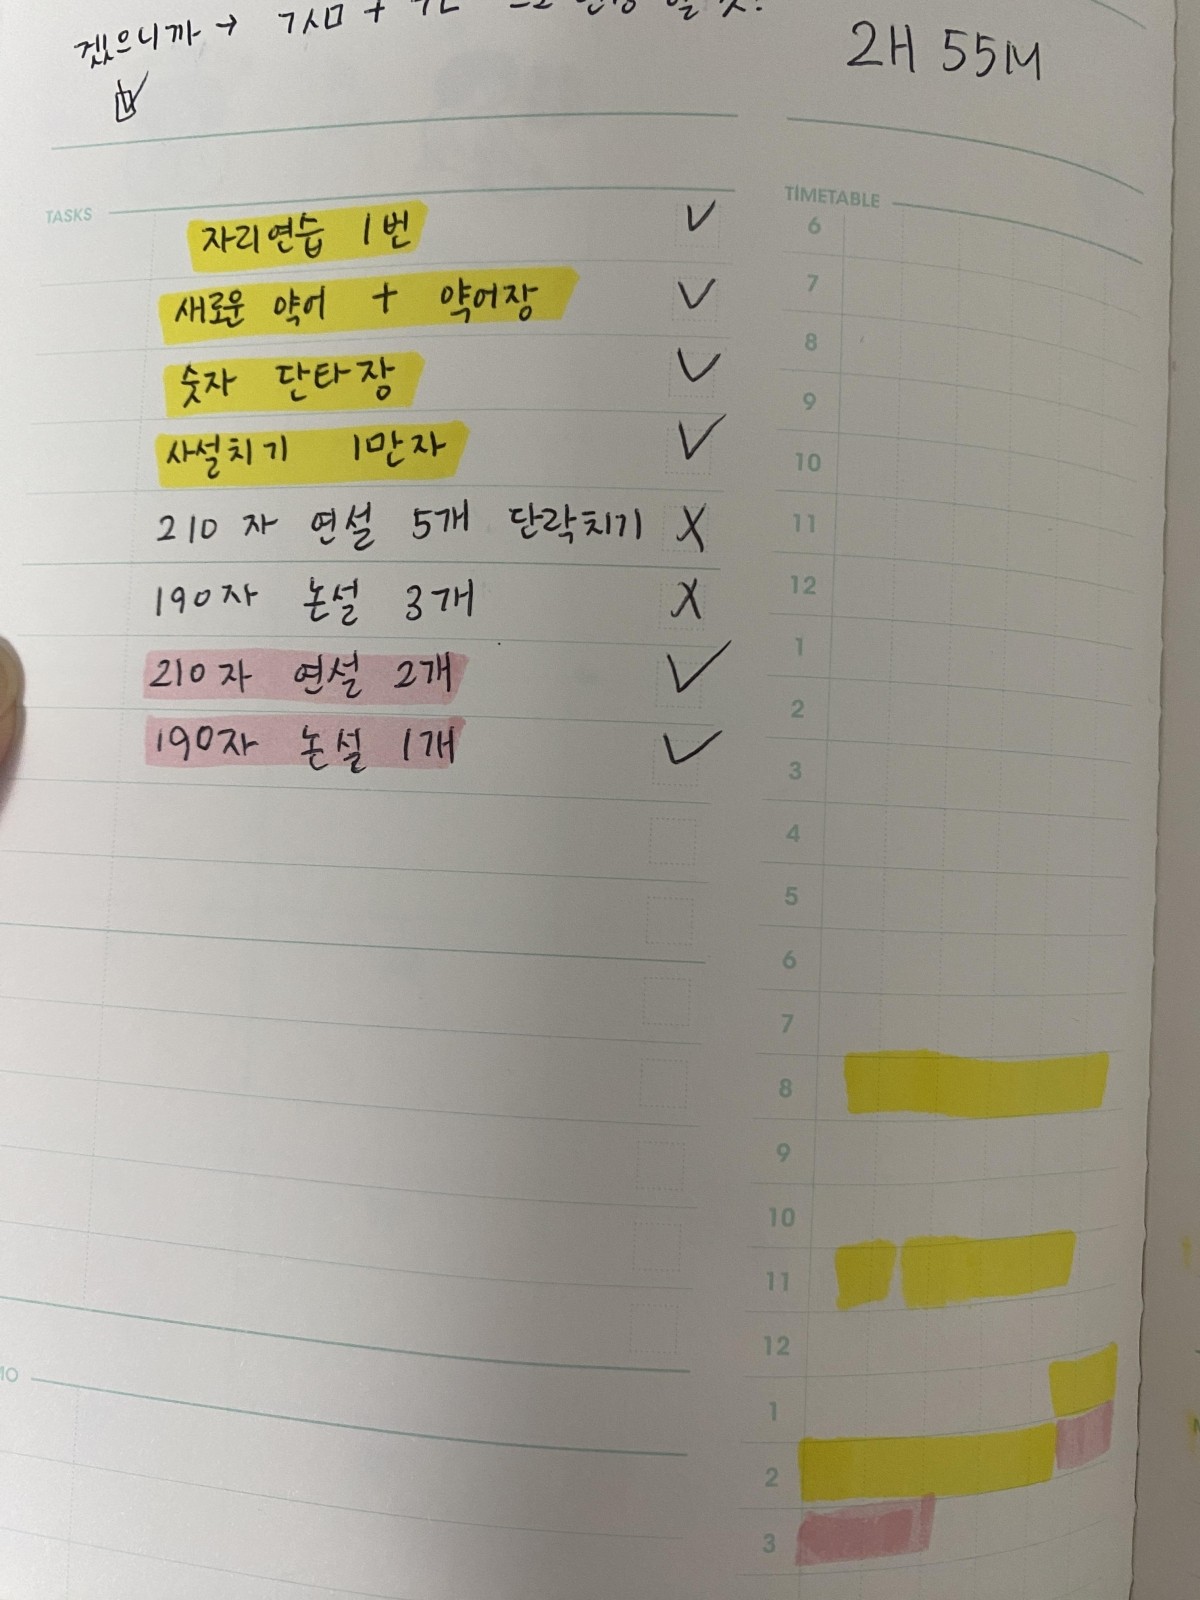 겠으니까 →
2H 55M
TASKS
자리연습 1번
새로운 약어 + 약어장
숫자 단타장
사설치기 1만자
210자 연설 5개 단락치기 X
190자 논설 3개 X
210자 연설 2개
190자 논설 1개
TIMETABLE
6
7
8
9
10
11
12
1
2
3
4
5
6
7
8
9
10
11
12
1
2
3